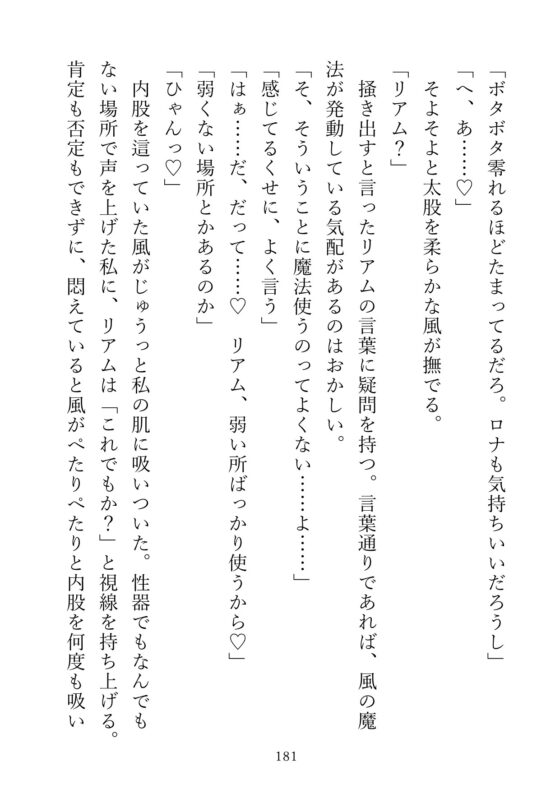 「ボタボタ零れるほどたまってるだろ。ロナも気持ちいいだろうし」
「へ、あ……♡」
そよそよと太股を柔らかな風が撫でる。
「リアム？」
掻き出すと言ったリアムの言葉に疑問を持つ。言葉通りであれば、風の魔
法が発動している気配があるのはおかしい。
「そ、そういうことに魔法使うのってよくない……よ……」
「感じてるくせに、よく言う」
「はぁ……だ、だって……♡　リアム、弱い所ばっかり使うから♡」
「弱くない場所とかあるのか」
「ひゃんっ♡」
内股を這っていた風がじゅうっと私の肌に吸いついた。性器でもなんでも
ない場所で声を上げた私に、リアムは「これでもか？」と視線を持ち上げる。
肯定も否定もできずに、悶えていると風がぺたりぺたりと内股を何度も吸い
181